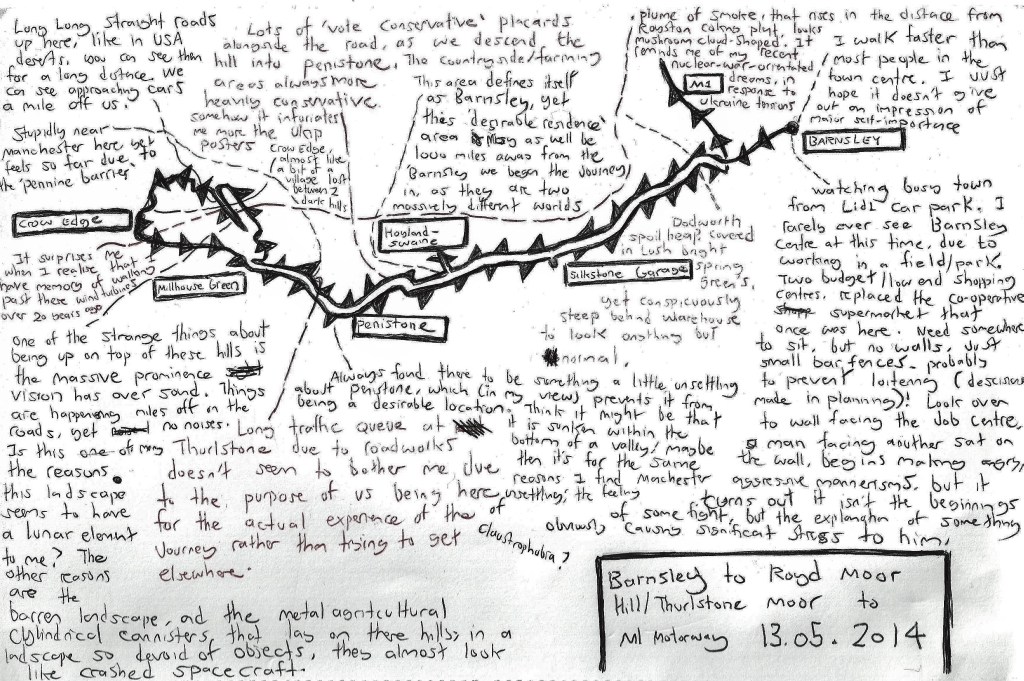 Long Long straight roads
up here, like in USA
deserts. you can see than
for a long distace. We
can see approaching cars
a mile off us.
Stupidly near
manchester here yet
feels so far due to
the 'pennine barrier'
Lots of 'vote Conservative' placards
alongside the road, as we descend the
hill into Penistone. The Countryside/farming
areas always more
heavily conservative.
somehow it infuriates
me more the ukip
posters
Crow Edge,
almost like
a bit of a
village lost
between 2
dark hills
This area defines itself
as Barnsley, yet
this 'desirable residence'
area may as well be
1000 miles away from the
Barnsley we begin the Journey
in, as they are two
massively different worlds
plume of smoke, that rises in the distace from
Royston coking plnt, looks
mushroom cloud-shaped. It
reminds me of my recent
nuclear-war-orientated
dreams, in
response to
Ukraine tensions
I walk faster than
most people in the
town centre. I Just
hope it doesn't give
out an impression of
major self-importance
M1
BARNSLEY
Crow Edge
Millhouse Green
Penistone
Hoyland-
swaine
Silkstone Garage
It surprises me
when I realise that I
have memory of walking
past there wind turbines
over 20 years ago
Dodworth
spoil heap, covered
in Lush bright
spring
green's,
yet conspicuously
steep behind warehouse
to look anything but
normal.
watching busy town
from Lidl car park. I
rarely ever see Barnsley
Centre at this time, due to
working in a field/park.
Two budget/low end shopping
centres, replaced the co-operative
supermarket that
once was here. Need somewhere
to sit, but no walls, Just
small bar fences. probably
to prevent loitering (descisions
made in planning)! Look over
to wall facing the Job Centre,
a man facing another sat on
the wall, begins making
aggressive mannerisms, but it
turns out it isn't the beginnings
of some fight, but the explanation of something
obviously causing significant stress to him.
one of the strange things about
being up on top of these hills is
the massive prominence
vision has over sound. Things
are happening miles off on the
roads, yet no noises.
Is this one of my
the reasons
this landscape
seems to have
a lunar element
to me? The
other reasons
are the
barren landscape, and the metal agricultural
cylindrical cannisters, that lay on there hills; in a
ladscape so devoid of objects, they almost look
like crashed spacecraft.
Long traffic queue at
Thurlstone due to roadworks
doesn't seem to bother me, due
to the purpose of us being here,
for the actual experience of the
Journey rather than trying to get
elsewhere.
Always fond there to be something a little unsettling
about penistone, which (in my view) prevents it from
being a desirable location. Think it might be that
it is sunken within the
bottom of a valley; maybe
then it's for the same
reasons I find Machester
unsettling; the feeling
of
claustrophobia?
Barnsley to Royd Moor
Hill/Thurlstone Moor to
M1 Motorway 13.05.2014